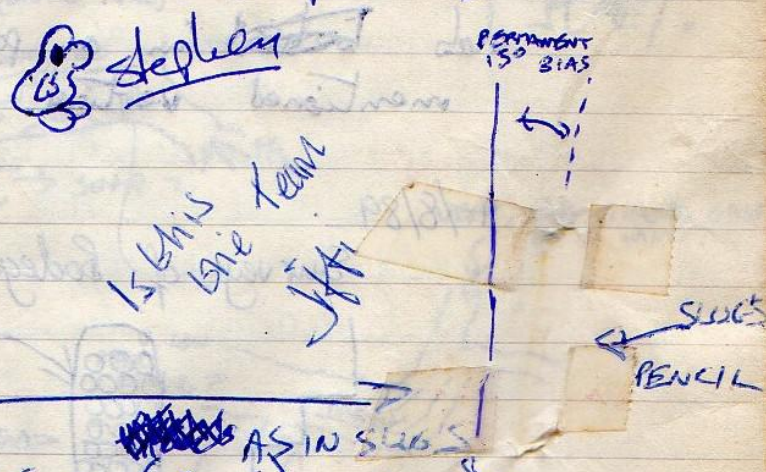 Stephen
PERMANENT
15° BIAS
Is this
the team
SLUG'S
PENCIL
AS IN SLUGS